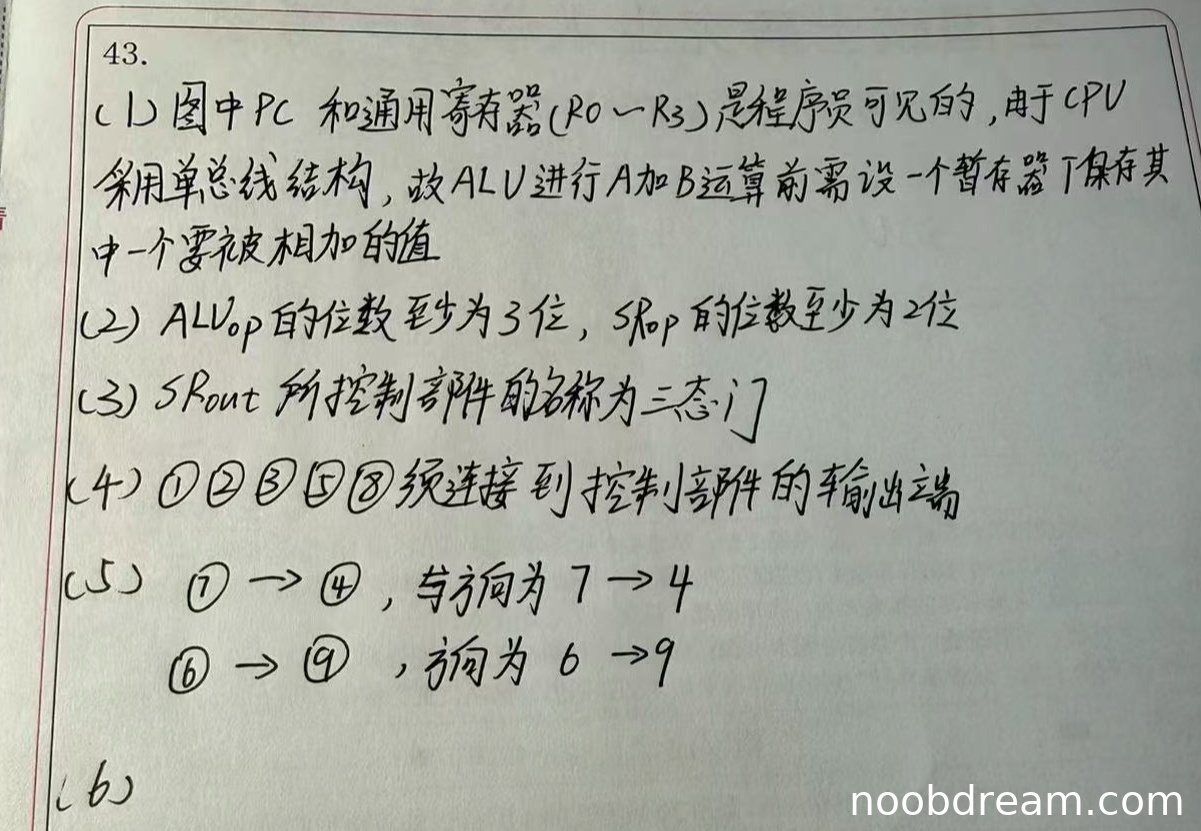 43.
(1) 图中PC 和通用寄存器(R0～R3)是程序员可见的,由于CPU
采用单总线结构,故ALU进行A加B运算前需设一个暂存器T保存其
中一个要被相加的值
(2) ALUop的位数至少为3位, SRop的位数至少为2位
(3) SRout 所控制部件的名称为三态门
(4) ①②③⑤⑧须连接到控制部件的输出端
(5) ⑦ → ④ , 与方向为 7 → 4
⑥ → ⑨ , 方向为 6 → 9
(6)
noobdream.com